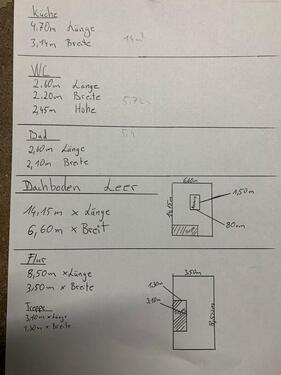 Küche
4.70m Länge
3,14m Breite
14m²
WC
2,60m Länge
2.20m Breite
5.72
2,45m Höhe
Bad
5,4
2,60m Länge
2,10m Breite
Dachboden Leer
6,60m
14,15m x Länge
14,15m
1,50m
6,60m x Breit
80cm
Flur
3,50m
8,50m x Länge
3,50m x Breite
1,30m
3,10m
8,50m
Treppe
3,10m x Länge
1,30m x Breite